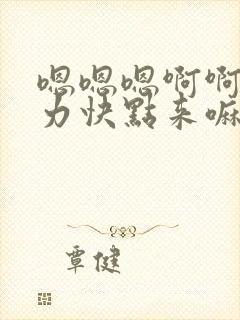 嗯嗯嗯啊啊
力快點来嘛
覃健